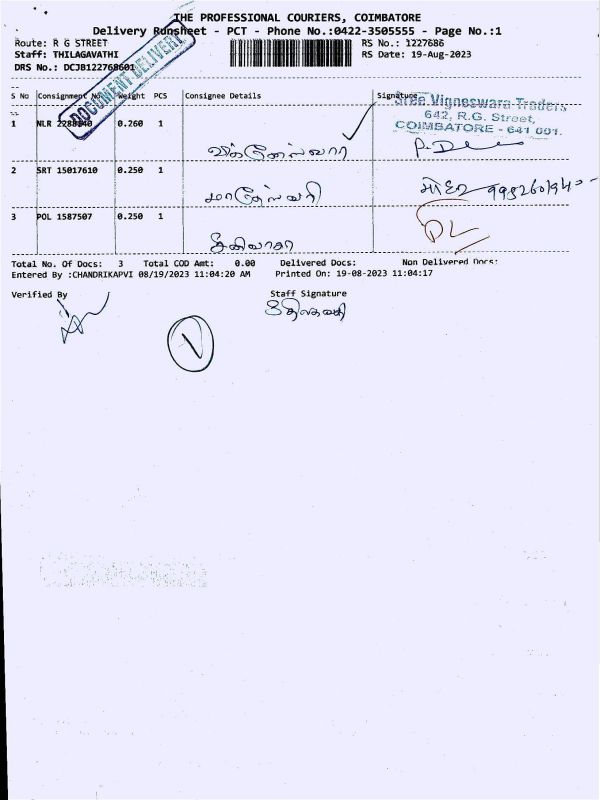 THE PROFESSIONAL COURIERS, COIMBATORE
Delivery Runsheet - PCT - Phone No.:0422-3505555 - Page No.:1
Route: R G STREET
RS No.: 1227686
Staff: THILAGAVATHI
RS Date: 19-Aug-2023
DRS No.: DCJB122768601
DOCUMENT DELIVERY
S No Consignment No Weight PCS Consignee Details Signature
Sree Vigneswara Traders
642, R.G. Street,
COIMBATORE - 641 001.
1 NLR 0.260 1
விக்னேஸ்வரா
2 SRT 15017610 0.250 1
மாகேஸ்வரி
3 POL 1587507 0.250 1
ஸ்ரீனிவாசா
Total No. Of Docs: 3 Total COD Amt: 0.00 Delivered Docs: Non Delivered Docs:
Entered By :CHANDRIKAPVI 08/19/2023 11:04:20 AM Printed On: 19-08-2023 11:04:17
Verified By Staff Signature
திலகவதி
1